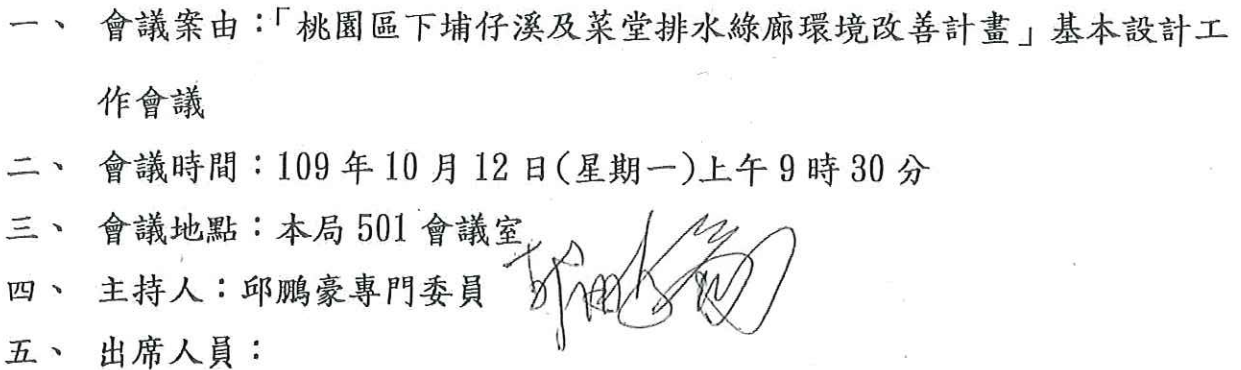 一、 會議案由：「桃園區下埔仔溪及菜堂排水綠廊環境改善計畫」基本設計工
作會議
二、 會議時間：109 年 10 月 12 日(星期一)上午 9 時 30 分
三、 會議地點：本局 501 會議室
四、 主持人：邱鵬豪專門委員
五、 出席人員：